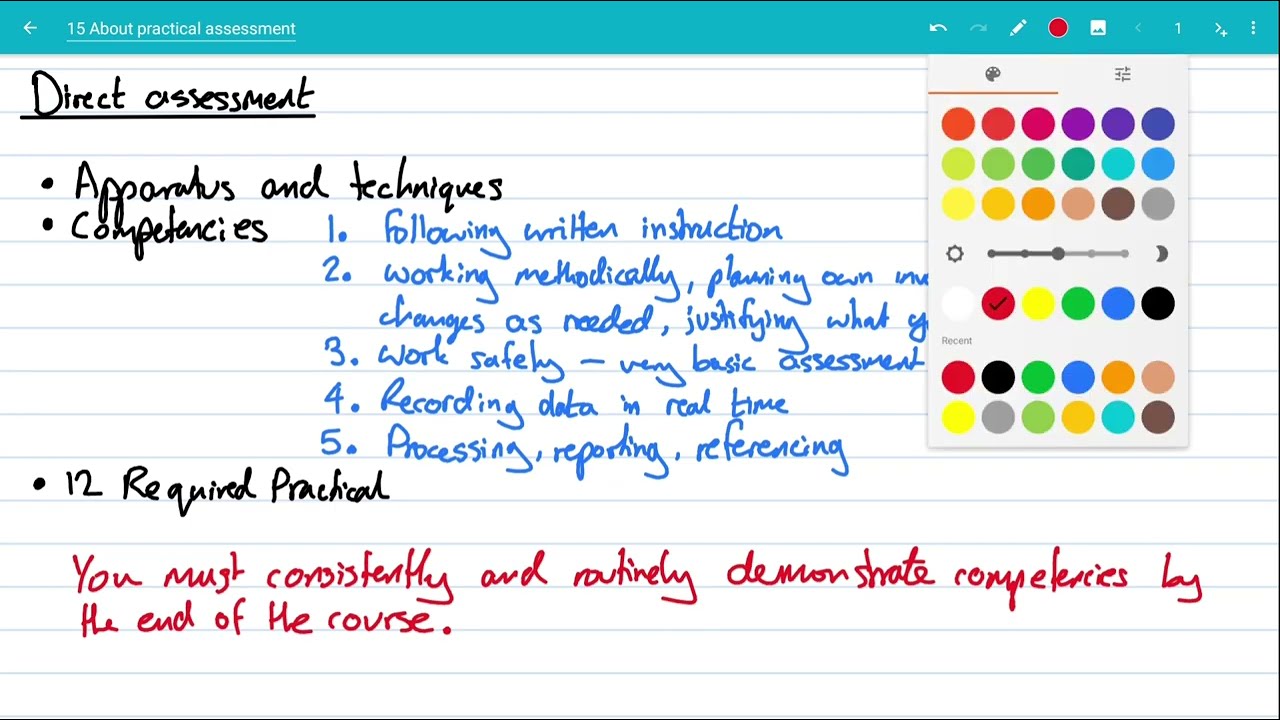 15 About practical assessment
1
Direct assessment
• Apparatus and techniques
• Competencies
1. Following written instruction
2. Working methodically, planning own
changes as needed, justifying what
3. Work safely – very basic assessment
4. Recording data in real time
5. Processing, reporting, referencing
• 12 Required Practical
You must consistently and routinely demonstrate competencies by
the end of the course.
Recent